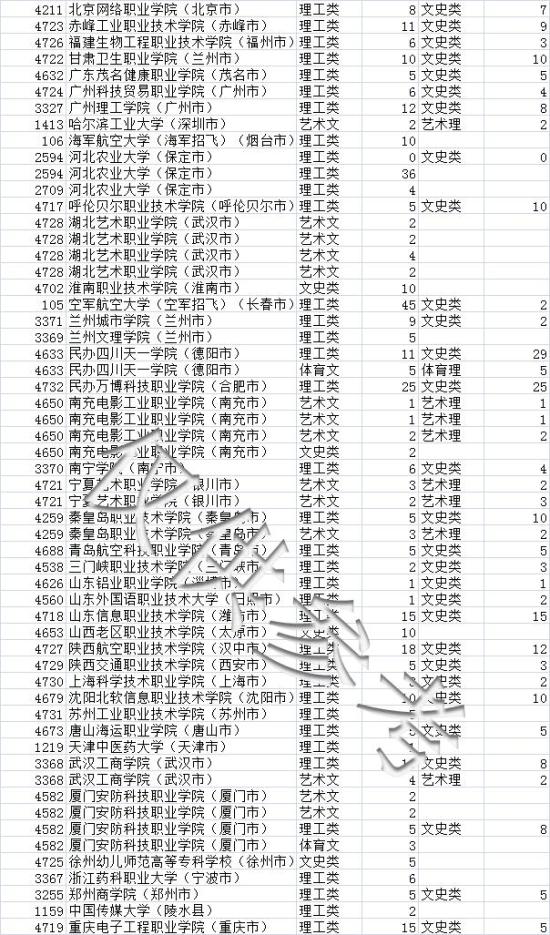 4211 北京网络职业学院（北京市） 理工类 8 文史类 7
4723 赤峰工业职业技术学院（赤峰市） 理工类 11 文史类 9
4726 福建生物工程职业技术学院（福州市） 理工类 6 文史类 3
4722 甘肃卫生职业学院（兰州市） 理工类 10 文史类 10
4632 广东茂名健康职业学院（茂名市） 理工类 5 文史类 5
4724 广州科技贸易职业学院（广州市） 理工类 6 文史类 4
3327 广州理工学院（广州市） 理工类 12 文史类 8
1413 哈尔滨工业大学（深圳市） 艺术文 2 艺术理 2
106 海军航空大学（海军招飞）（烟台市） 理工类 10
2594 河北农业大学（保定市） 理工类 0 文史类 0
2594 河北农业大学（保定市） 理工类 36
2709 河北农业大学（保定市） 理工类 4
4717 呼伦贝尔职业技术学院（呼伦贝尔市） 理工类 5 文史类 10
4728 湖北艺术职业学院（武汉市） 艺术文 2
4728 湖北艺术职业学院（武汉市） 艺术文 2
4728 湖北艺术职业学院（武汉市） 艺术文 4
4728 湖北艺术职业学院（武汉市） 艺术文 2
4702 淮南职业技术学院（淮南市） 文史类 10
105 空军航空大学（空军招飞）（长春市） 理工类 45 文史类 2
3371 兰州城市学院（兰州市） 理工类 9 文史类 2
3369 兰州文理学院（兰州市） 理工类 5
4633 民办四川天一学院（德阳市） 理工类 11 文史类 29
4633 民办四川天一学院（德阳市） 体育文 5 体育理 5
4732 民办万博科技职业学院（合肥市） 理工类 25 文史类 25
4650 南充电影工业职业学院（南充市） 艺术文 1 艺术理 1
4650 南充电影工业职业学院（南充市） 艺术文 1 艺术理 1
4650 南充电影工业职业学院（南充市） 艺术文 2 艺术理 2
4650 南充电影工业职业学院（南充市） 文史类 2
3370 南宁学院（南宁市） 理工类 6 文史类 4
4721 宁夏艺术职业学院（银川市） 艺术文 3 艺术理 2
4721 宁夏艺术职业学院（银川市） 艺术文 2 艺术理 3
4259 秦皇岛职业技术学院（秦皇岛市） 理工类 5 文史类 10
4259 秦皇岛职业技术学院（秦皇岛市） 艺术文 3 艺术理 2
4688 青岛航空科技职业学院（青岛市） 理工类 5 文史类 5
4538 三门峡职业技术学院（三门峡市） 理工类 2 文史类 3
4626 山东铝业职业学院（淄博市） 理工类 1 文史类 1
4560 山东外国语职业技术大学（日照市） 理工类 1 文史类 2
4718 山东信息职业技术学院（潍坊市） 理工类 15 文史类 15
4653 山西老区职业技术学院（太原市） 文史类 10
4727 陕西航空职业技术学院（汉中市） 理工类 18 文史类 12
4729 陕西交通职业技术学院（西安市） 理工类 5 文史类 3
4730 上海科学技术职业学院（上海市） 理工类 文史类 2
4679 沈阳北软信息职业技术学院（沈阳市） 理工类 10 文史类 10
4731 苏州工业职业技术学院（苏州市） 理工类 5
4673 唐山海运职业学院（唐山市） 理工类 5 文史类 5
1219 天津中医药大学（天津市） 理工类
3368 武汉工商学院（武汉市） 理工类 文史类 8
3368 武汉工商学院（武汉市） 艺术文 4 艺术理 2
4582 厦门安防科技职业学院（厦门市） 艺术文 2
4582 厦门安防科技职业学院（厦门市） 艺术文 2
4582 厦门安防科技职业学院（厦门市） 理工类 5 文史类 8
4582 厦门安防科技职业学院（厦门市） 体育文 3
4725 徐州幼儿师范高等专科学校（徐州市） 文史类 5
3367 浙江药科职业大学（宁波市） 理工类 6
3255 郑州商学院（郑州市） 理工类 5 文史类 5
1159 中国传媒大学（陵水县） 理工类 2
4719 重庆电子工程职业学院（重庆市） 理工类 15 文史类 5